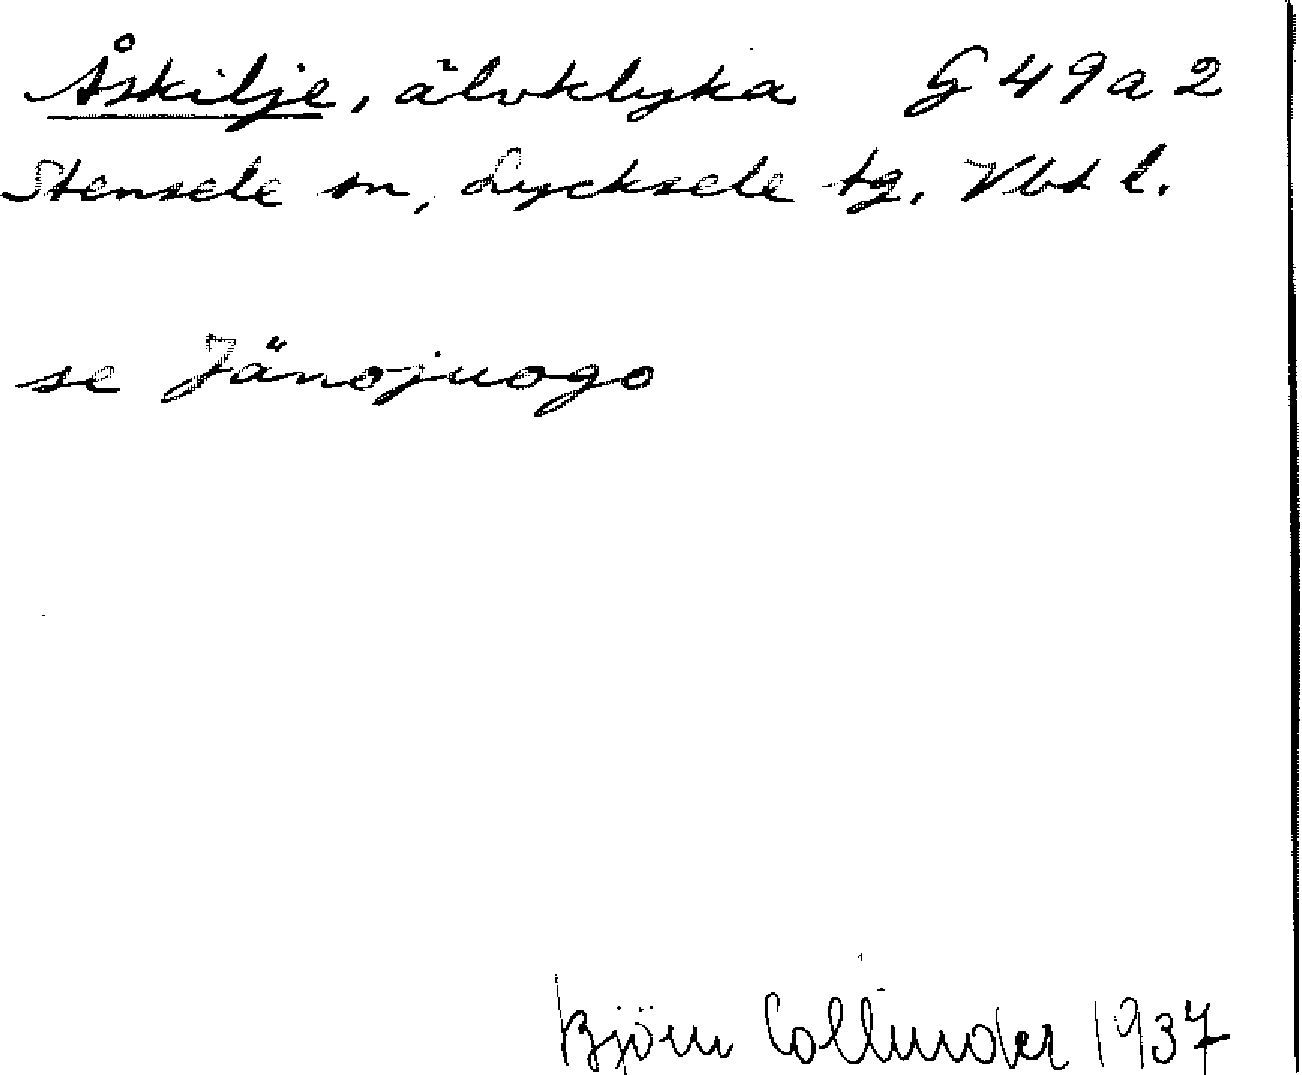 Åskilje, älvklyka G 49 a 2
Stensele sn, Lycksele tg. Vbt l.
se Jänojuogo
Björn Collinder 1937